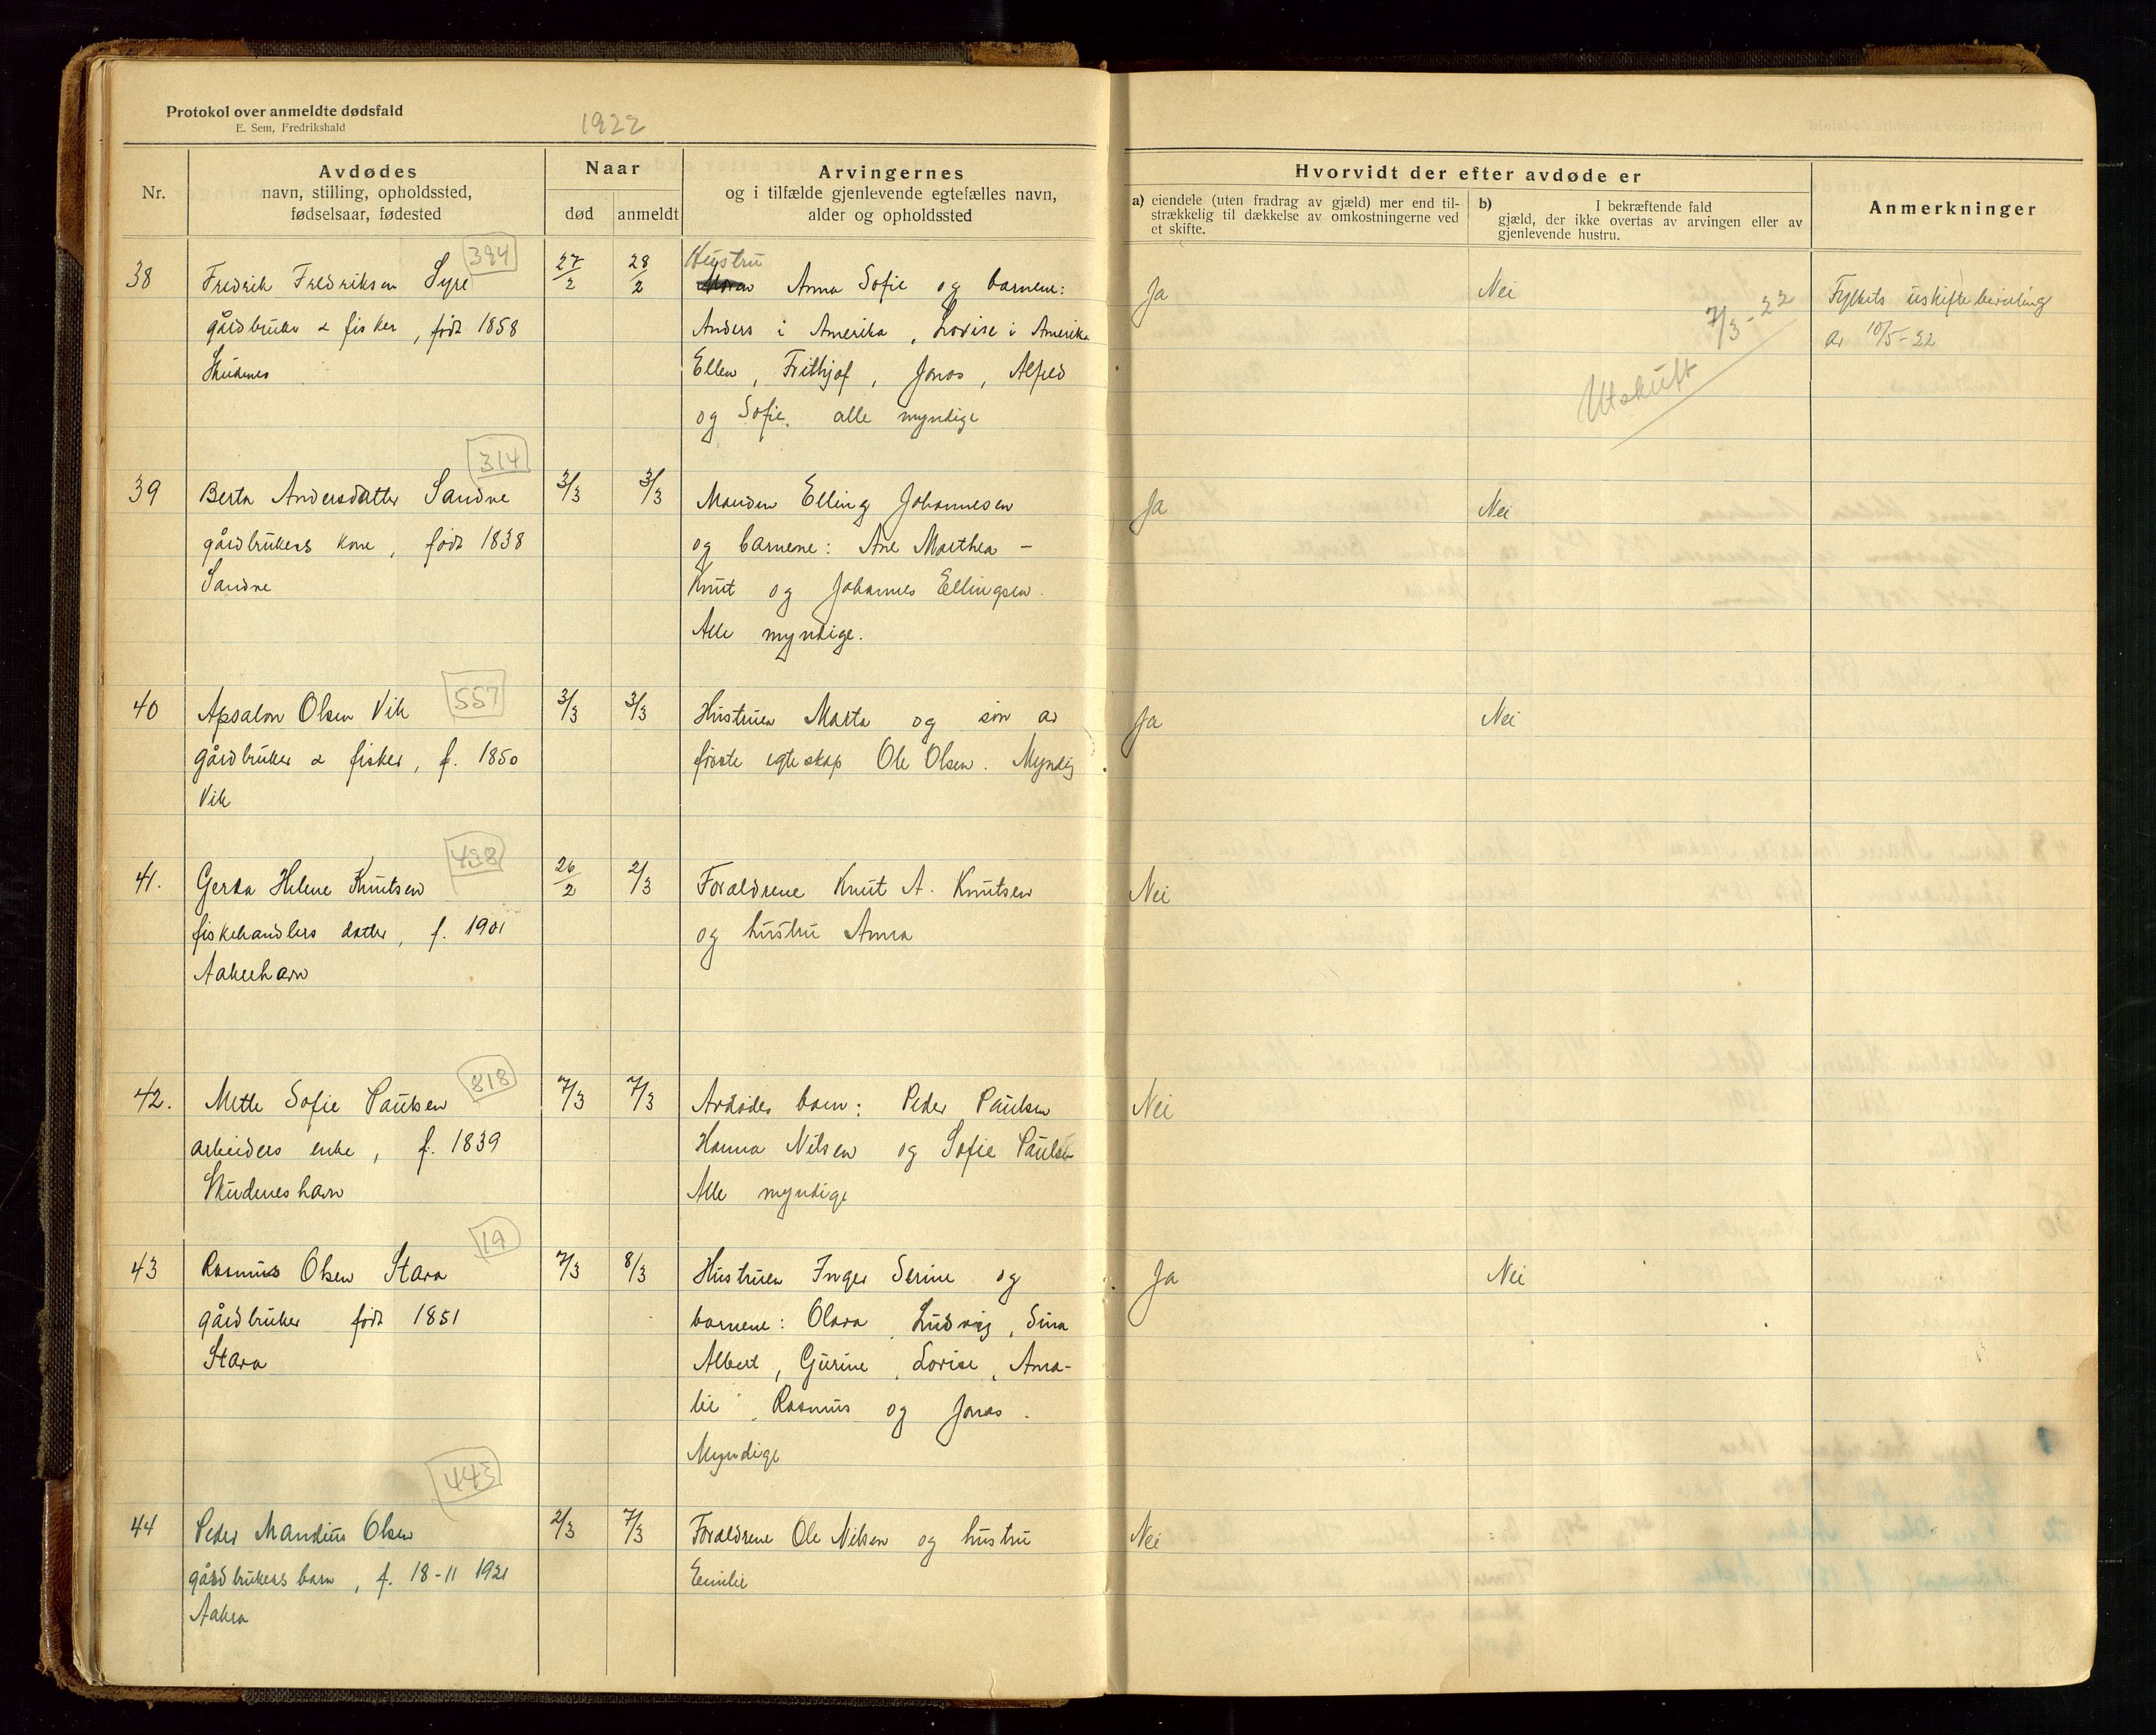 Protokol over anmeldte dødsfald
E. Sem, Fredrikshald
1922
Nr.
Avdødes
navn, stilling, opholdssted,
fødselsaar, fødested
Naar
død
anmeldt
Arvingernes
og i tilfælde gjenlevende egtefælles navn,
alder og opholdssted
Hvorvidt der efter avdøde er
a) eiendele (uten fradrag av gjæld) mer end til-
strækkelig til dækkelse av omkostningerne ved
et skifte.
b) I bekræftende fald
gjæld, der ikke overtas av arvingen eller av
gjenlevende hustru.
Anmerkninger
38
Fredrik Fredriksen Syre
394
gårdbruker & fisker, født 1858
Skudenes
27/2
28/2
Hustru
Anna Sofie og barnene:
Anders i Amerika, Lovise i Amerika
Ellen, Frithjof, Jonas, Alfred
og Sofie. alle myndige
Ja
Nei
7/3-22
Utskrift
Fylkets uskiftebevilling
av 10/5-22
39
314
Berta Andersdatter Sandve
gårdbrukers kone, født 1838
Sandve
3/3
3/3
Manden Elling Johannesen
og barnene: Ane Marthea -
Knut og Johannes Ellingsen.
Alle myndige.
Ja
Nei
40
Apsalon Olsen Vik
557
gårdbruker & fisker, f. 1850
Vik
3/3
3/3
Hustruen Marta og søn av
første egteskap Ole Olsen. Myndig
Ja
Nei
41.
458
Gerda Helene Knutsen
fiskehandlers datter, f. 1901
Aakrehavn
26/2
2/3
Forældrene Knut A. Knutsen
og hustru Anna
Nei
42.
818
Mette Sofie Paulsen
arbeiders enke, f. 1839
Skudeneshavn
7/3
7/3
Avdødes barn: Peder Paulsen
Hanna Nilsen og Sofie Paulsen
Alle myndige
Nei
43
19
Rasmus Olsen Stava
gårdbruker født 1851
Stava
7/3
8/3
Hustruen Inger Serine og
barnene: Olava, Ludvig, Sina
Albert, Gurine, Lovise, Ama-
lie, Rasmus og Jonas.
Myndige
Ja
Nei
44
443
Peder Mandius Olsen
gårdbrukers barn, f. 18-11 1921
Aakra
2/3
7/3
Forældrene Ole Nilsen og hustru
Emilie
Nei